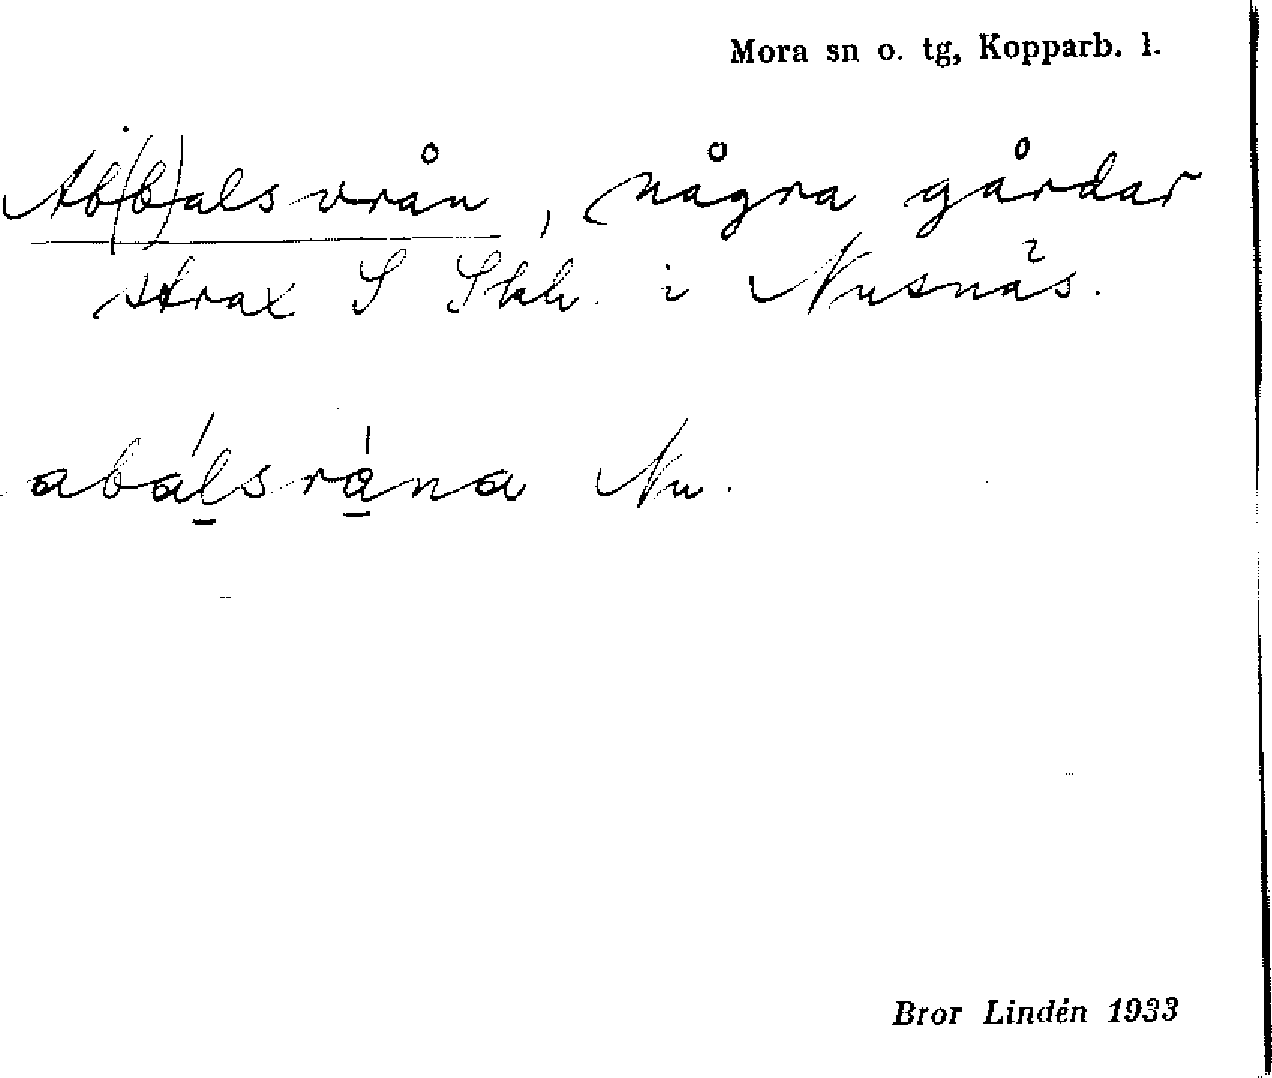 Mora sn o. tg, Kopparb. l.
Ab(b)alsvrån, några gårdar
strax S Skh. i Nusnäs.
abálsrána Nu.
Bror Lindén 1933